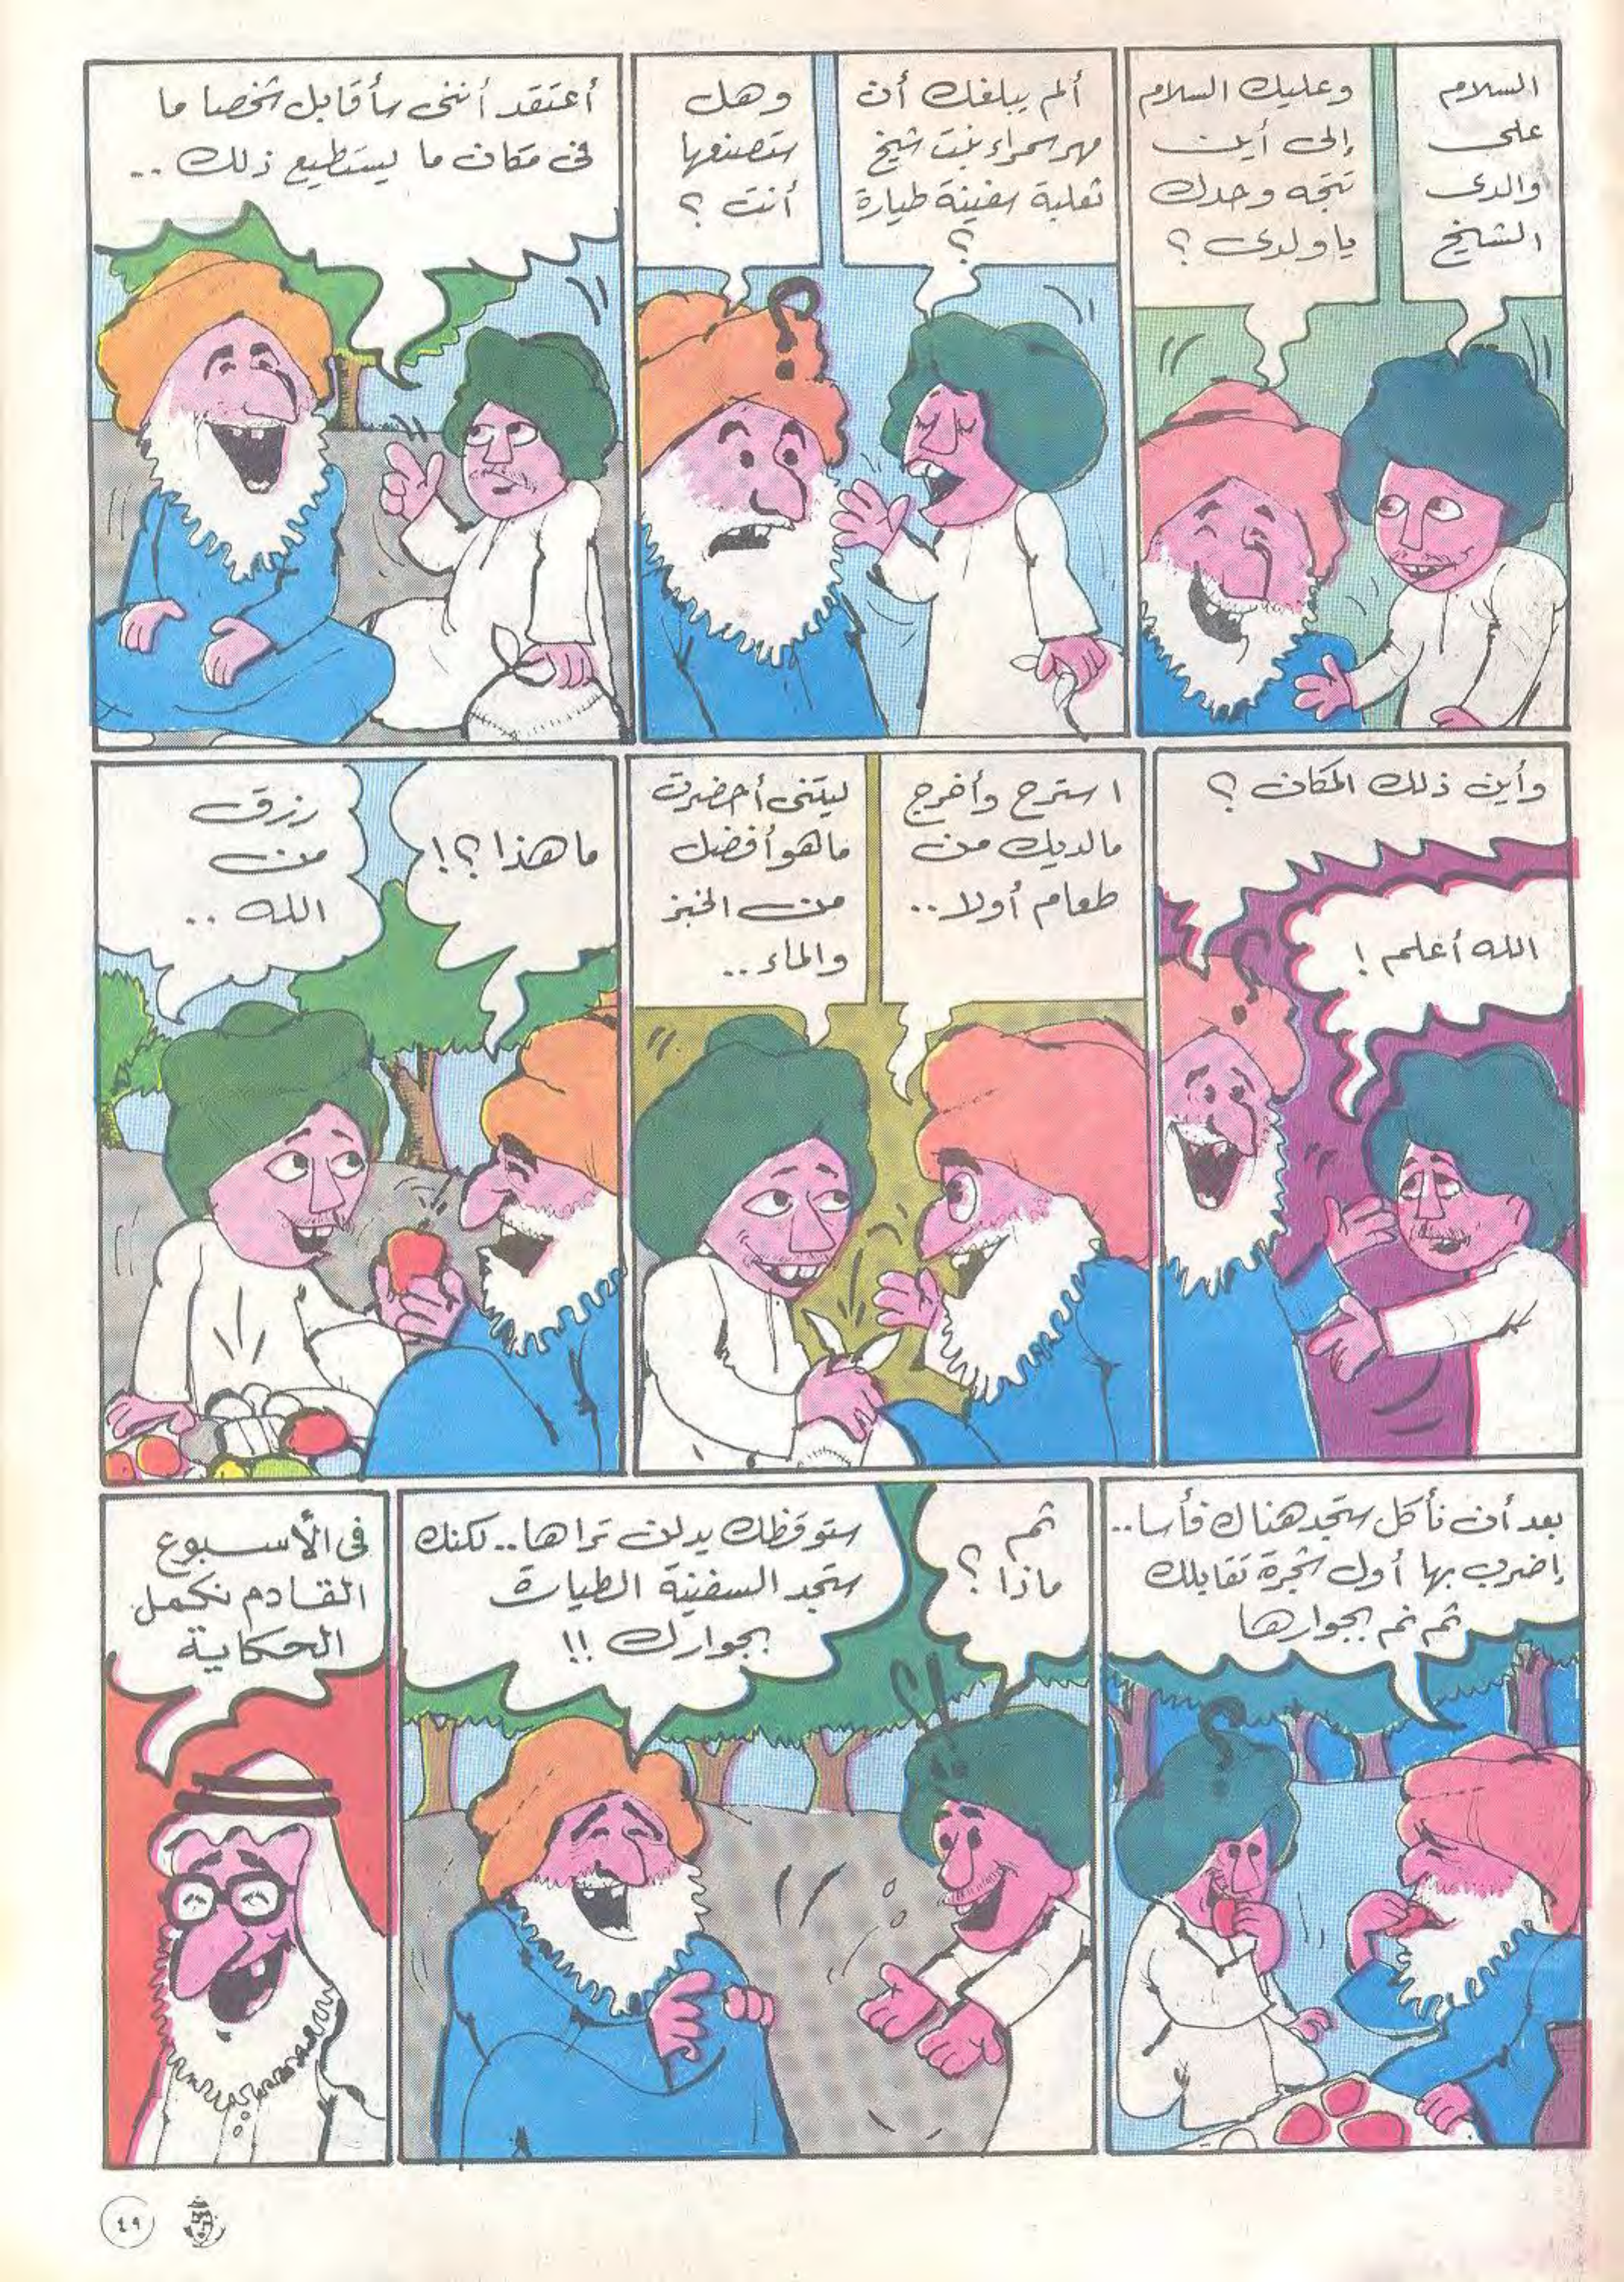 السلام
على
والدى
الشيخ
وعليك السلام
إلى أين
تتجه وحدك
يا ولدى ؟
ألم يبلغك أن
مهر سمراء بنت شيخ
ثعلبة سفينة طيارة
؟
وهل
ستصنعها
أنت ؟
أعتقد أننى سأقابل شخصا ما
فى مكان ما يستطيع ذلك ..
وأين ذلك المكان ؟
الله أعلم !
استرح وأخرج
مالديك من
طعام أولا ..
ليتنى أحضرت
ما هو أفضل
من الخبز
والماء ..
ما هذا ؟!
رزق
من
الله ..
بعد أن نأكل ستجد هناك فأسا ..
إضرب بها أول شجرة تقابلك
ثم نم بجوارها
ثم
ماذا ؟
ستوقظك يد لن تراها .. لكنك
ستجد السفينة الطيارة
بجوارك !!
فى الأسبوع
القادم نكمل
الحكاية
٤٩